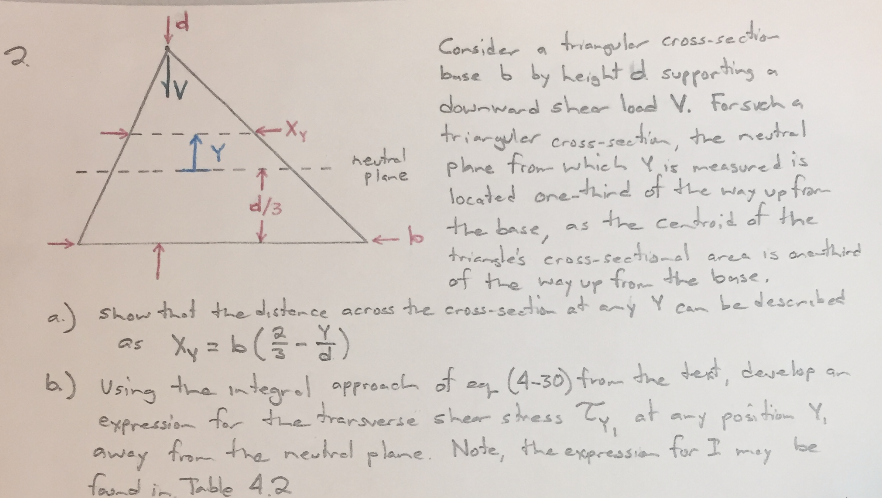 2.
d
V
X_Y
Y
neutral
plane
d/3
b
Consider a triangular cross-section
base b by height d supporting a
downward shear load V. For such a
triangular cross-section, the neutral
plane from which Y is measured is
located one-third of the way up from
the base, as the centroid of the
triangle's cross-sectional area is one-third
of the way up from the base.
a.) Show that the distance across the cross-section at any Y can be described
as X_Y = b(2/3 - Y/d)
b.) Using the integral approach of eq (4-30) from the text, develop an
expression for the transverse shear stress τ_Y₁ at any position Y₁
away from the neutral plane. Note, the expression for I may be
found in Table 4.2